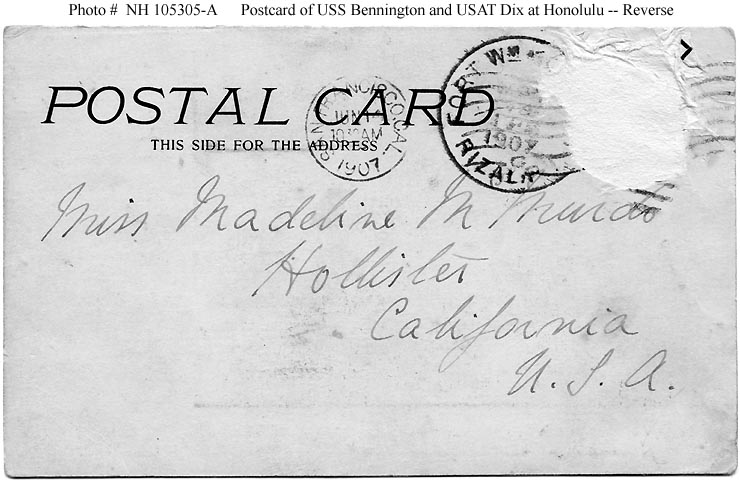 Photo # NH 105305-A Postcard of USS Bennington and USAT Dix at Honolulu -- Reverse
POSTAL CARD
THIS SIDE FOR THE ADDRESS
SAN FRANCISCO, CAL.
JUN
1030AM
1907
FORT WM
1907
RIZAL
Miss Madeline M Murdo
Hollister
California
U. S. A.